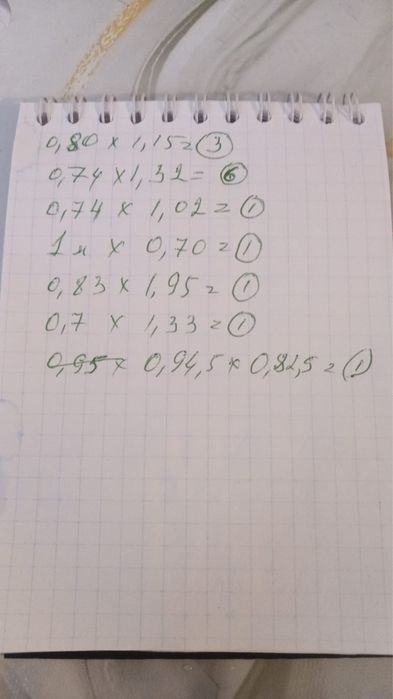 0,80 x 1,15 = 3
0,74 x 1,32 = 6
0,74 x 1,02 = 1
1м x 0,70 = 1
0,83 x 1,95 = 1
0,7 x 1,33 = 1
0,95 x 0,94,5 x 0,82,5 = 1